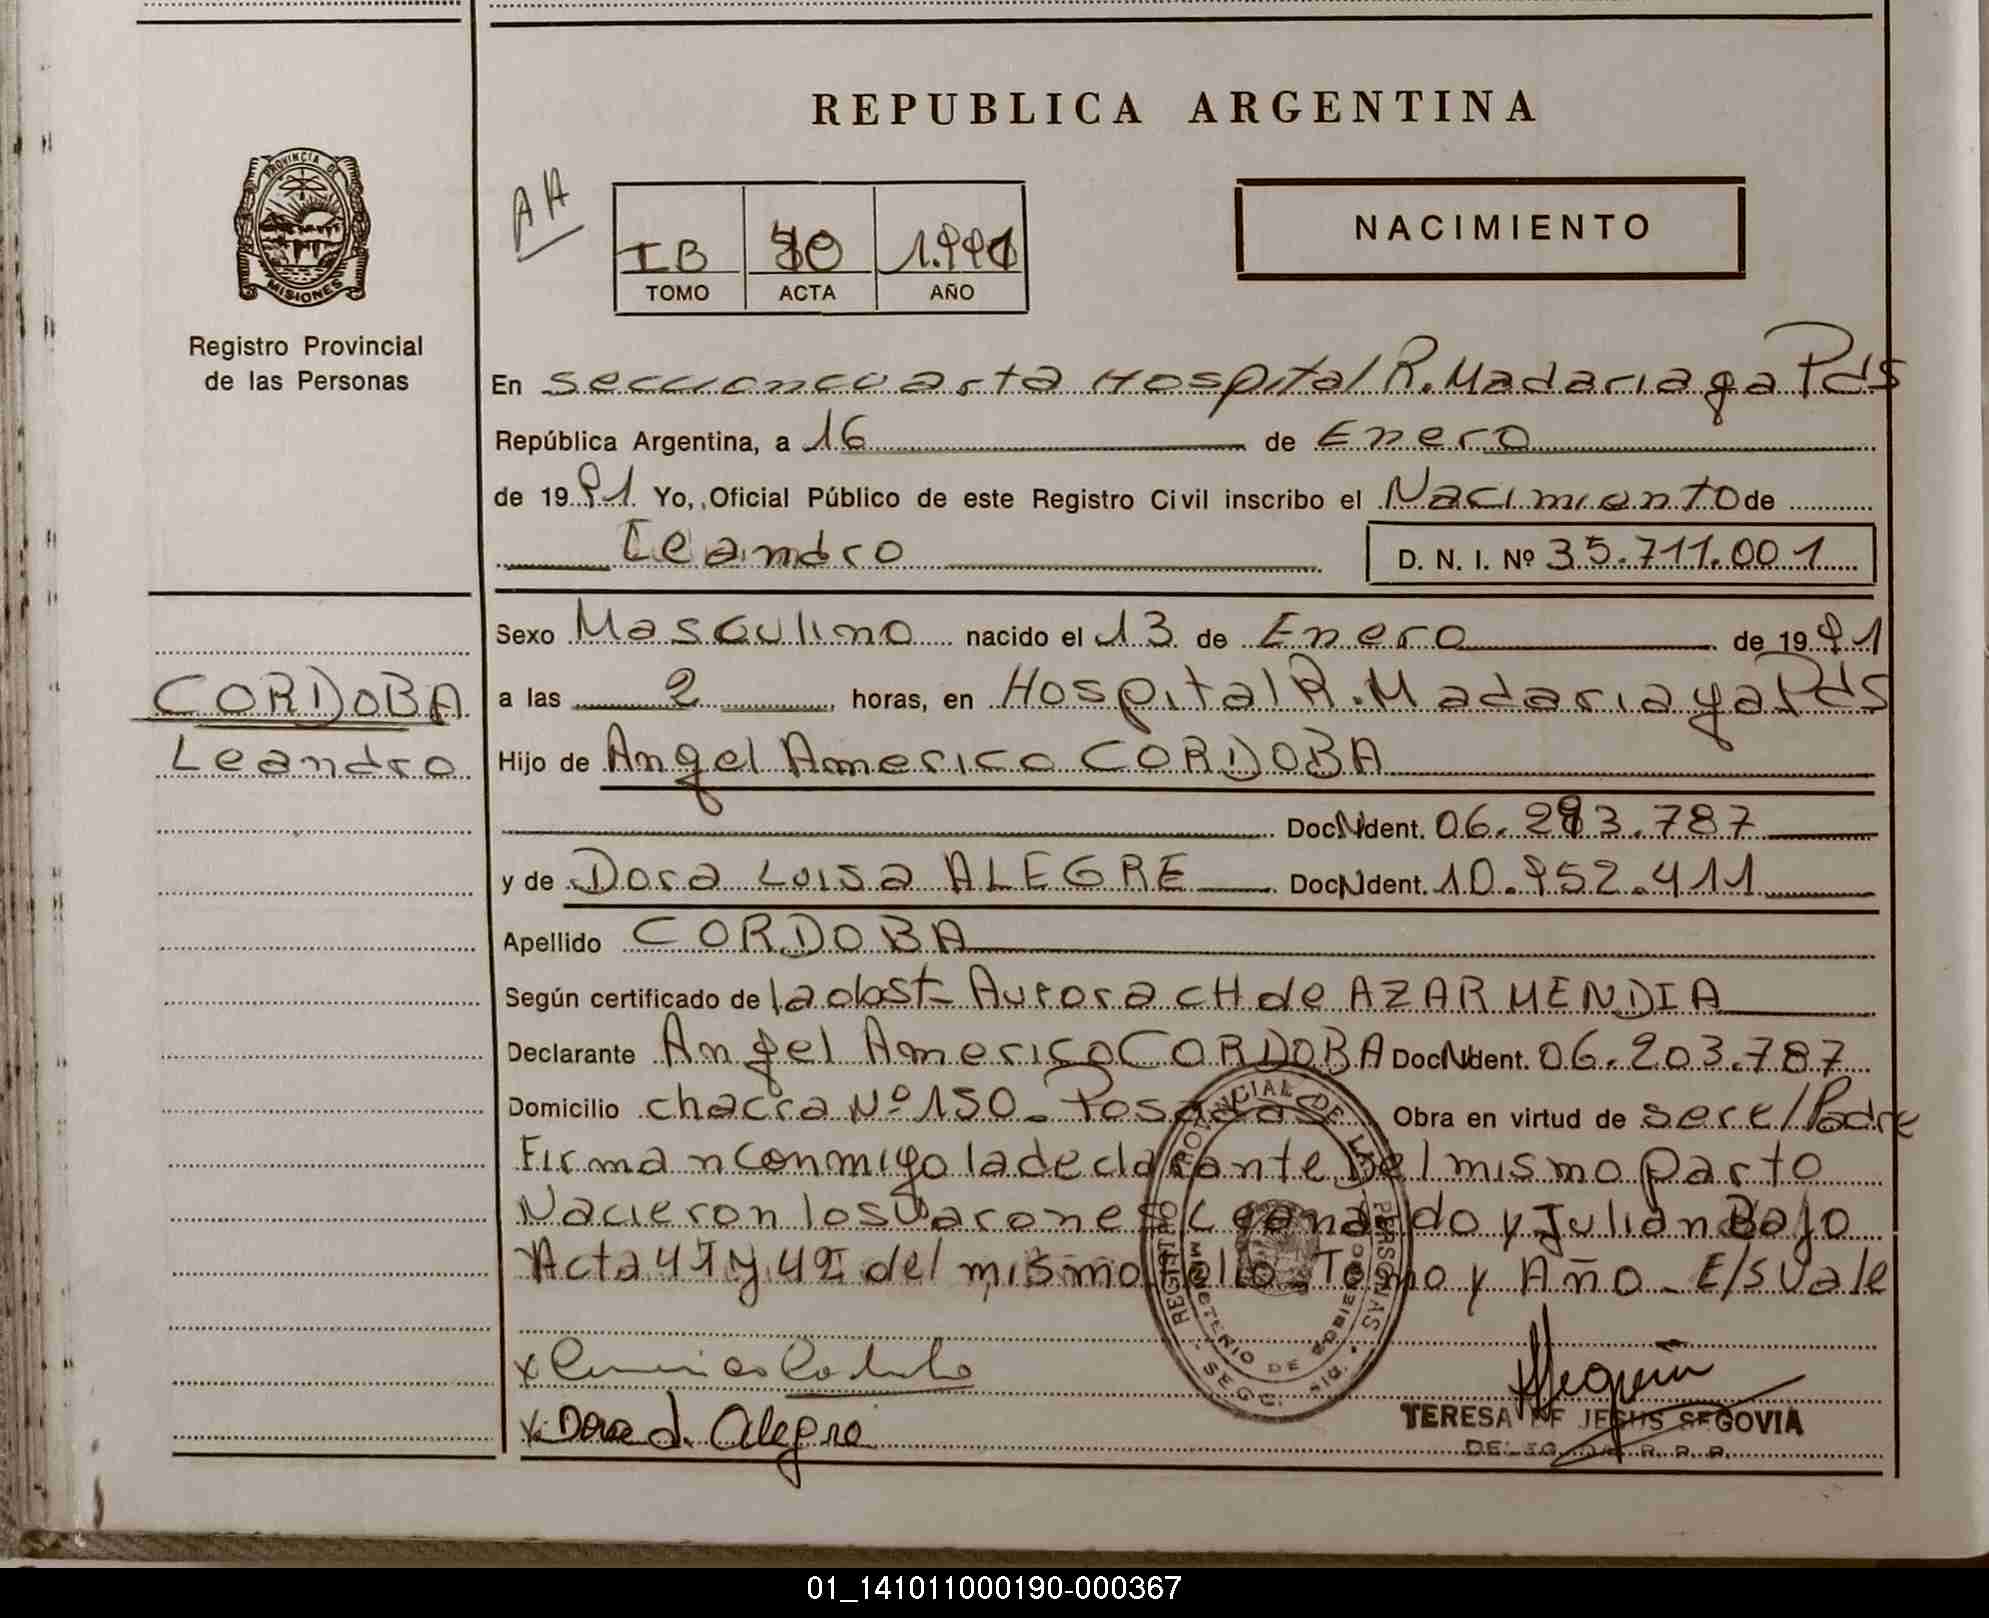 REPUBLICA ARGENTINA
PROVINCIA DE
MISIONES
Registro Provincial
de las Personas
AH
IB
1.991
TOMO ACTA AÑO
NACIMIENTO
En seccion cuarta Hospital R. Madariaga Pds
República Argentina, a 16 de Enero
de 1991 Yo, Oficial Público de este Registro Civil inscribo el Nacimiento de
Leandro D. N. I. Nº 35.711.001
Sexo Masculino nacido el 13 de Enero de 1991
CORDOBA
Leandro
a las 2 horas, en Hospital R. Madariaga Pds
Hijo de Angel Americo CORDOBA
Doc Ident. 06.203.787
y de Dora Luisa ALEGRE Doc Ident. 10.952.411
Apellido CORDOBA
Según certificado de la obst- Aurora CH de AZARMENDIA
Declarante Angel Americo CORDOBA Doc Ident. 06.203.787
Domicilio chacra Nº 150 - Posadas Obra en virtud de ser el Padre
Firman conmigo la declarante Del mismo parto
Nacieron los varones Leonardo y Julian Bajo
Acta 41 y 42 del mismo Tomo y Año - E/S Vale
REGISTRO PROVINCIAL DE LAS PERSONAS
MINISTERIO DE GOBIERNO
x Americo Cordoba
x Dora L. Alegre
TERESA DE JESUS SEGOVIA
DELEGADA R. P. P.
01_141011000190-000367